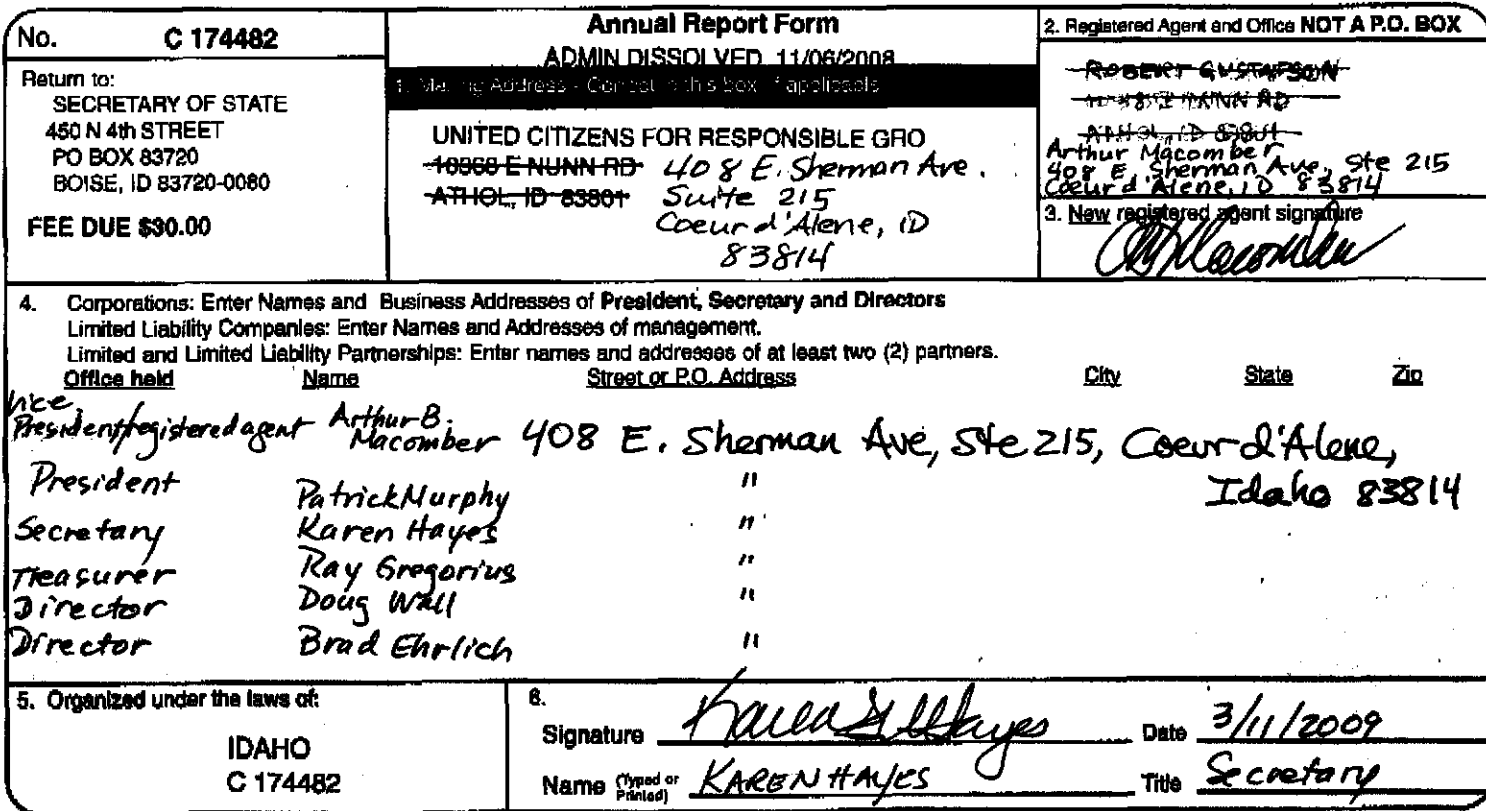 No. C 174482
Return to:
SECRETARY OF STATE
450 N 4th STREET
PO BOX 83720
BOISE, ID 83720-0080
FEE DUE $30.00
Annual Report Form
ADMIN DISSOLVED 11/06/2008
1. Mailing Address - Correct in this box if applicable
UNITED CITIZENS FOR RESPONSIBLE GRO
E NUNN RD 408 E. Sherman Ave.
ATHOL, ID 83801 Suite 215
Coeur d'Alene, ID
83814
2. Registered Agent and Office NOT A P.O. BOX
ROBERT GUSTAFSON
NUNN RD
ATHOL, ID 83801
Arthur Macomber
408 E. Sherman Ave, Ste 215
Coeur d'Alene, ID 83814
3. New registered agent signature
4. Corporations: Enter Names and Business Addresses of President, Secretary and Directors
Limited Liability Companies: Enter Names and Addresses of management.
Limited and Limited Liability Partnerships: Enter names and addresses of at least two (2) partners.
Office held Name Street or P.O. Address City State Zip
Vice
President/registered agent Arthur B. Macomber 408 E. Sherman Ave, Ste 215, Coeur d'Alene,
Idaho 83814
President Patrick Murphy "
Secretary Karen Hayes "
Treasurer Ray Gregorius "
Director Doug Wall "
Director Brad Ehrlich "
5. Organized under the laws of:
IDAHO
C 174482
6.
Signature Karen Hayes Date 3/11/2009
Name (Typed or Printed) KAREN HAYES Title Secretary